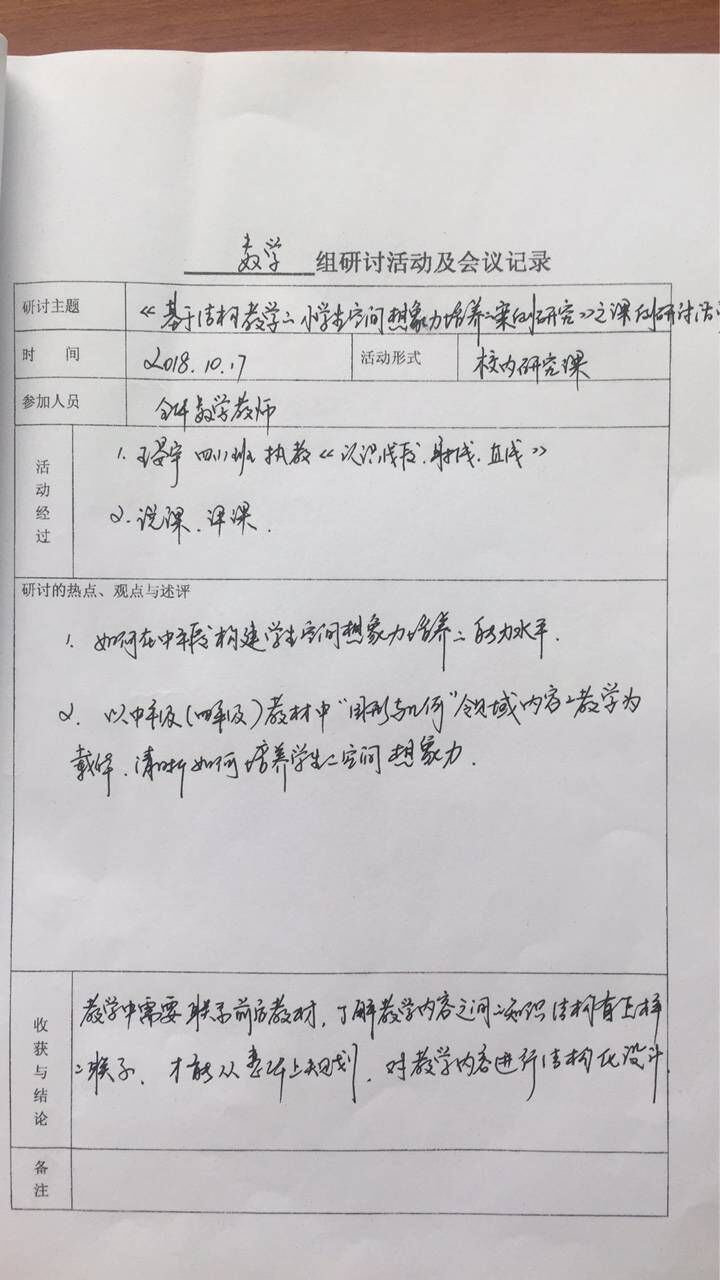 数学 组研讨活动及会议记录
研讨主题 《基于结构教学的小学生空间想象力培养的案例研究》之课例研讨活
时 间 2018.10.17 活动形式 校内研究课
参加人员 全体数学教师
活动经过
1. 王景宇 四(1)班 执教《认识线段、射线、直线》
2. 说课、评课.
研讨的热点、观点与述评
1. 如何在中年段构建学生空间想象力培养的能力水平.
2. 以中年级(四年级)教材中“图形与几何”领域内容的教学为
载体、清晰如何培养学生的空间想象力.
收获与结论
教学中需要联系前后教材,了解教学内容之间的知识结构有怎样
的联系、才能从整体上规划,对教学内容进行结构化设计.
备注